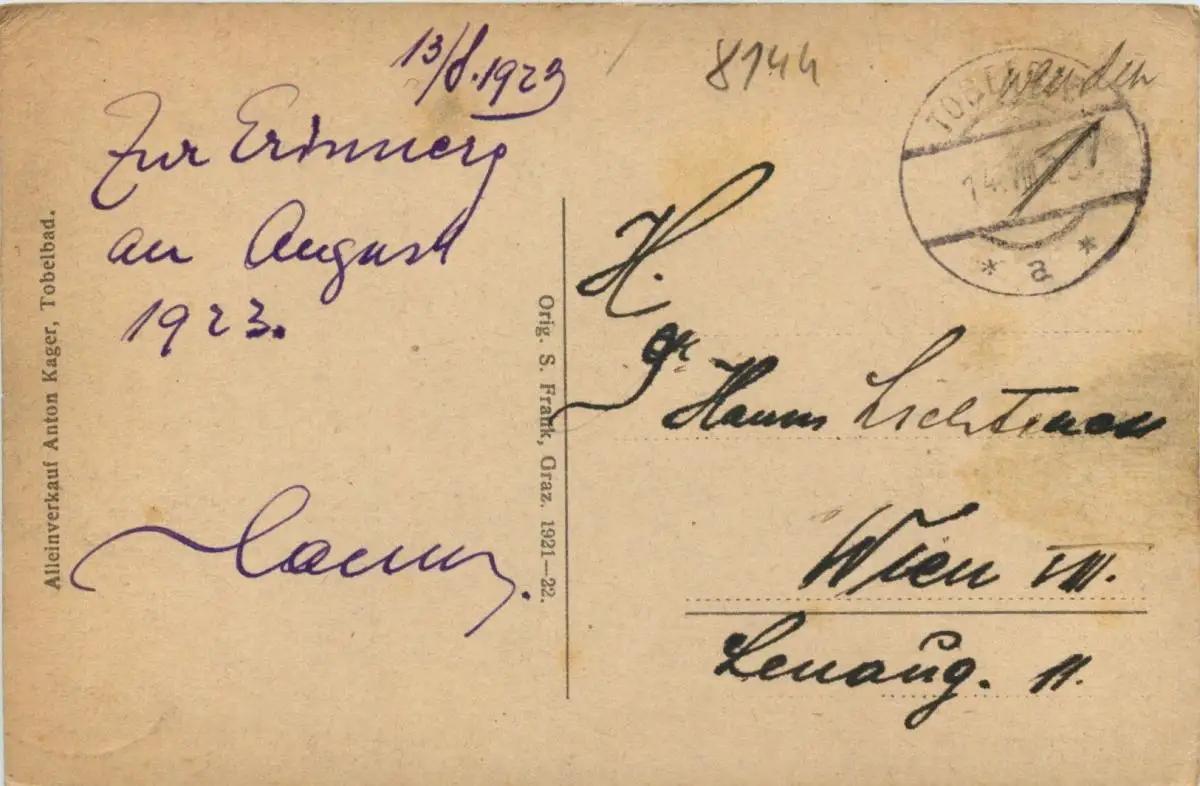 13/8.1923
Zur Erinnerg
an August
1923.
Hanns.
Alleinverkauf Anton Kager, Tobelbad.
Orig. S. Frank, Graz. 1921—22.
8144
wenden
TOBELBAD
14.VIII
* a *
H.
Hanns
Wien VIII.
Lenaug. 11.